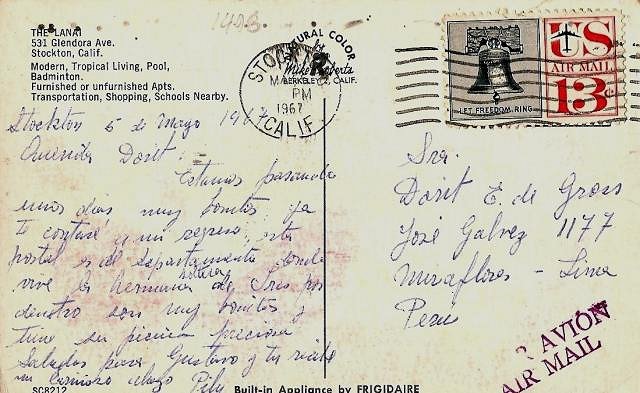 1403
THE LANAI
531 Glendora Ave.
Stockton, Calif.
Modern, Tropical Living, Pool,
Badminton.
Furnished or unfurnished Apts.
Transportation, Shopping, Schools Nearby.
NATURAL COLOR
by
Mike Roberts
BERKELEY 2, CALIF.
STOCKTON
MA
PM
1967
CALIF
US
AIR MAIL
13c
LET FREEDOM RING
Stockton 5 de Mayo 1967
Querida Dorit:
Estamos pasando
unos dias muy bonitos, ya
te contare a mi regreso, esta
postal es del departamento donde
vive la hermana de por
dentro son muy bonitos y
tiene su piscina preciosa
Saludos para Gustavo y tu recibe
un cariñoso abrazo Pily
Sra.
Dorit E. de Gross
José Galvez 1177
Miraflores - Lima
Peru
R AVION
AIR MAIL
SC8212
Built-in Appliance by FRIGIDAIRE